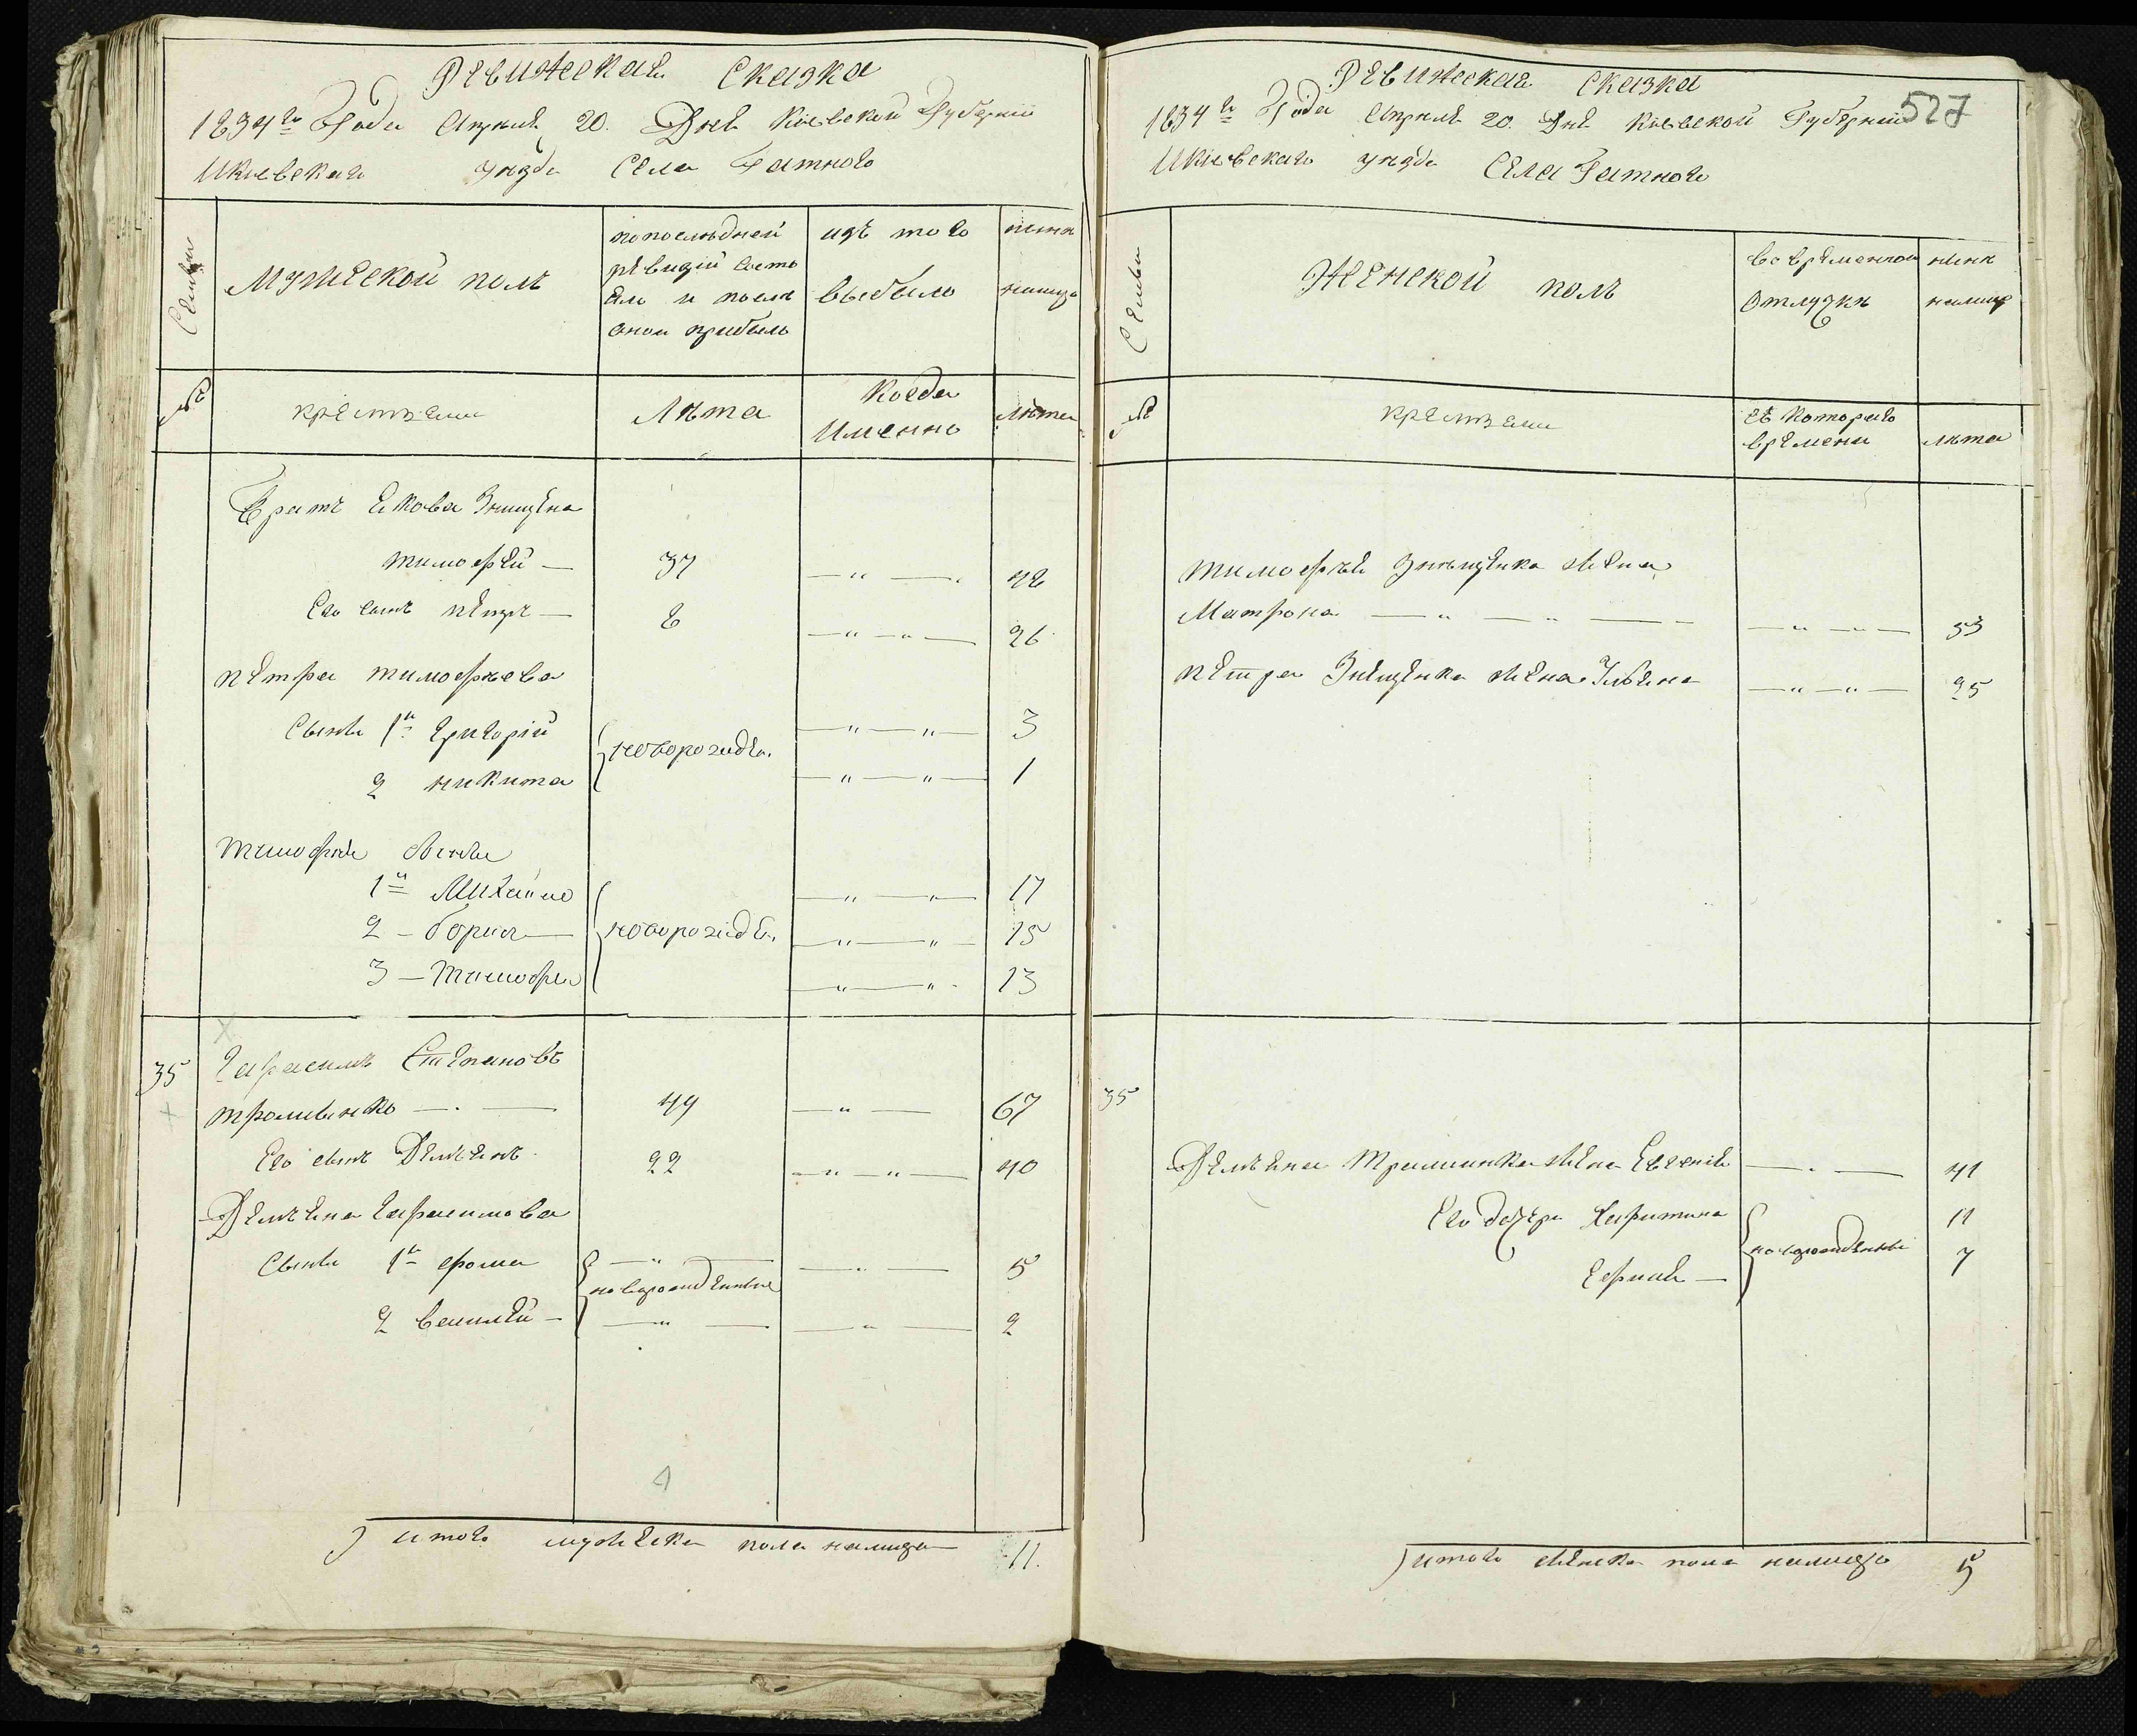 Ревижская Сказка
1834го Года Апреля 20. Дня Киевской Губерніи
И киевскаго уезда Села Гатного
Семьи
Мужеской полъ
по последней
ревизіи состо
яло и после
оной прибыло
изъ того
выбыло
ныне
налицо
№
крестьяни
Лета
Когда
Именно
лета
Братъ Якова Знищена
тимофей — 37 — " — 42
Его сынъ петръ — 8 — " — " — 26
петра тимофеева
Сыны 1й Григорій — " — " — 3
новорожде.
2 никита — " — " — 1
тимофея сыны
1й Михайло — " — " — 17
2 — борисъ — новорожде. — " — " — 15
3 — тимофей — " — " — 13
35 Герасимъ Степановъ
49 — " — 67
Его сынъ Демъянъ 22 — " — " — 40
Демъяна Герасимова
Сыны 1й фома — " — — " — 5
новорожденные
2 василей — — " — — " — 2
4
итого мужеска пола налицо 11.
Ревижская Сказка
527
1834го Года Апреля 20. Дня Киевской Губерніи
И киевскаго уезда Села Гатного
Семьи
Женской полъ
во временной
отлучке
ныне
налицо
№
крестьяни
съ котораго
времени
лета
тимофея Знищенка жена
Матрона — " — " — — " — " — 53
петра Знищенка жена Ульяна — " — " — 25
35
Демьяна жена Евгенія — " — 41
Его дочери Харитина 11
новорожденны
7
итого женска пола налицо 5